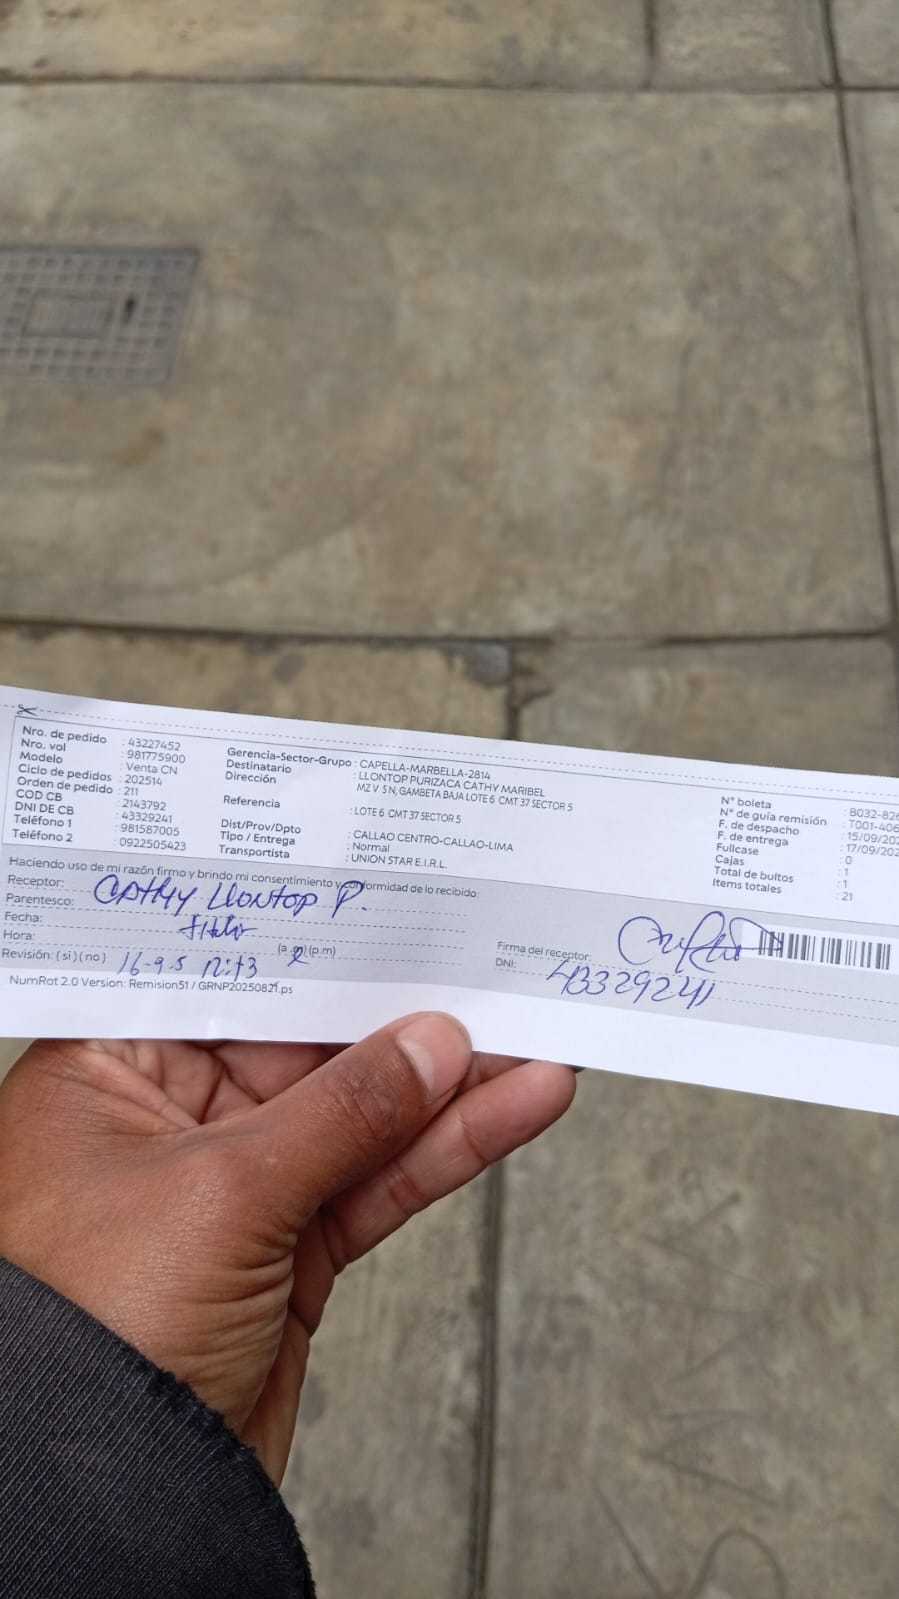 Nro. de pedido : 43227452
Nro. vol : 981775900
Modelo : Venta CN
Ciclo de pedidos : 202514
Orden de pedido : 211
COD CB : 2143792
DNI DE CB : 43329241
Teléfono 1 : 981587005
Teléfono 2 : 0922505423
Gerencia-Sector-Grupo : CAPELLA-MARBELLA-2814
Destinatario : LLONTOP PURIZACA CATHY MARIBEL
Dirección MZ V 5 N, GAMBETA BAJA LOTE 6 CMT 37 SECTOR 5
Referencia : LOTE 6 CMT 37 SECTOR 5
Dist/Prov/Dpto : CALLAO CENTRO-CALLAO-LIMA
Tipo / Entrega : Normal
Transportista : UNION STAR E.I.R.L.
N° boleta : B032-826
N° de guía remisión : T001-406
F. de despacho : 15/09/202
F. de entrega : 17/09/202
Fullcase : 0
Cajas : 1
Total de bultos : 1
Items totales : 21
Haciendo uso de mi razón firmo y brindo mi consentimiento y conformidad de lo recibido:
Receptor: CATHY LLONTOP P.
Parentesco:
Fecha:
Hora: (a.m) (p.m)
Revisión: ( si ) ( no ) 16-9-5
Firma del receptor:
DNI: 43329241
NumRot 2.0 Version: Remision51 / GRNP20250821.ps